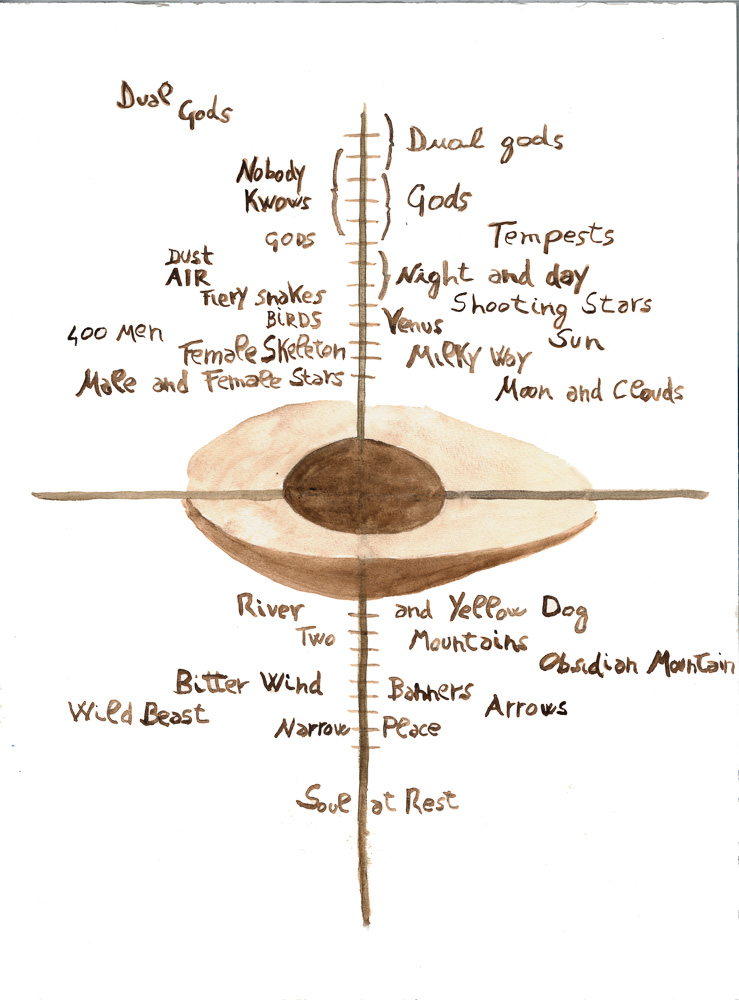 Dual Gods
Dual gods
Nobody
Kwows
Gods
GODS
Tempests
Dust
AIR
Night and day
Fiery snakes
Shooting Stars
BIRDS
Venus
400 Men
Sun
Female Skeleton
Milky Way
Male and Female Stars
Moon and Clouds
River and Yellow Dog
Two Mountains
Obsidian Mountain
Bitter Wind
Banners
Wild Beast
Arrows
Narrow Place
Soul at Rest